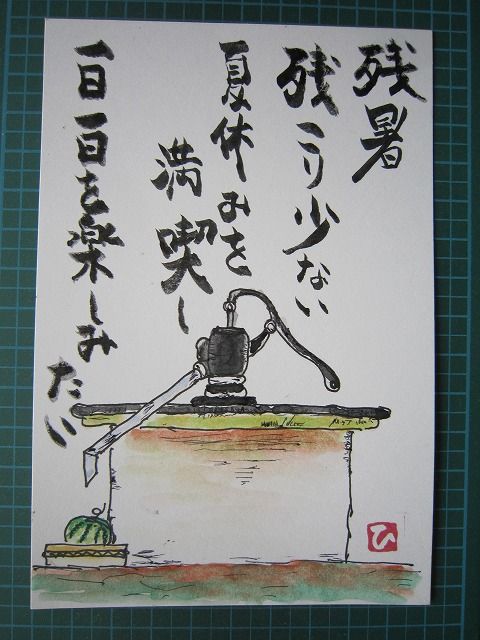 残暑
残り少ない
夏休みを
満喫し
一日一日を楽しみ
たい
ひ